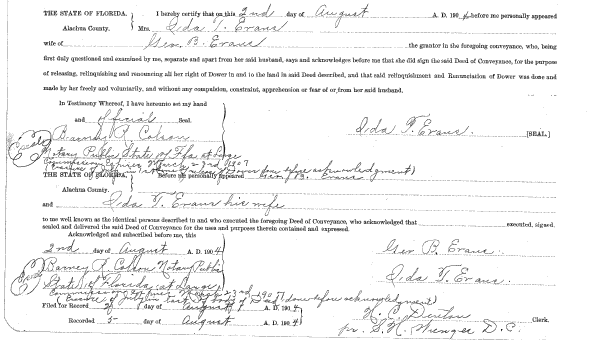 THE STATE OF FLORIDA, I hereby certify that on this 2nd day of August A. D. 1904, before me personally appeared
Alachua County. Mrs. Ida T. Evans
wife of Geo. B. Evans the grantor in the foregoing conveyance, who, being
first duly questioned and examined by me, separate and apart from her said husband, says and acknowledges before me that she did sign the said Deed of Conveyance, for the purpose
of releasing, relinquishing and renouncing all her right of Dower in and to the land in said Deed described, and that said relinquishment and Renunciation of Dower was done and
made by her freely and voluntarily, and without any compulsion, constraint, apprehension or fear of or from her said husband.
In Testimony Whereof, I have hereunto set my hand
and official Seal.
Barney R. Colson Ida T. Evans. [SEAL.]
Notary Public State of Fla. at Large
Commission Expires March 23rd 1907
before acknowledgment)
THE STATE OF FLORIDA, Before me personally appeared Geo. B. Evans
Alachua County.
and Ida T. Evans his wife
to me well known as the identical persons described in and who executed the foregoing Deed of Conveyance, who acknowledged that executed, signed,
sealed and delivered the said Deed of Conveyance for the uses and purposes therein contained and expressed.
Acknowledged and subscribed before me, this
2nd day of August A. D. 1904 Geo. B. Evans
Barney R. Colson Notary Public
State of Florida at Large Ida T. Evans.
Commission Expires March 23rd 1907
before acknowledgment)
Filed for Record 2 day of August A. D. 1904 H. C. Denton Clerk.
Recorded 5 day of August A. D. 1904 pr. S. H. Wienges D. C.